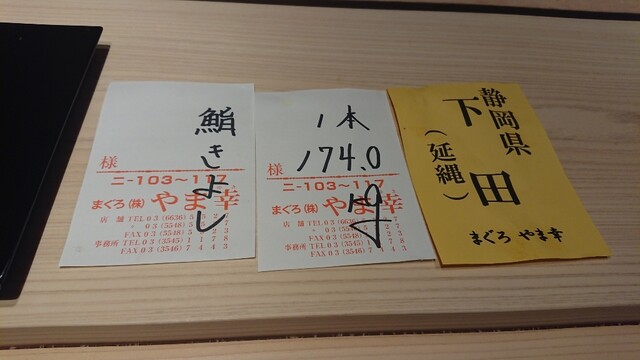 鮨きよし
様
ニ-103~117
まぐろ(株)やま幸
店舗 TEL 03 (6636)
〃 03 (5548)
FAX 03 (5548)
事務所 TEL 03 (3545) 1178
FAX 03 (3546) 7443
1本
174.0
様
ニ-103~117
まぐろ(株)やま幸
店舗 TEL 03
〃 03 (5548)
FAX 03 (5548)
事務所 TEL 03 (3545)
FAX 03 (3546) 7443
静岡県
下田
(延縄)
まぐろ やま幸